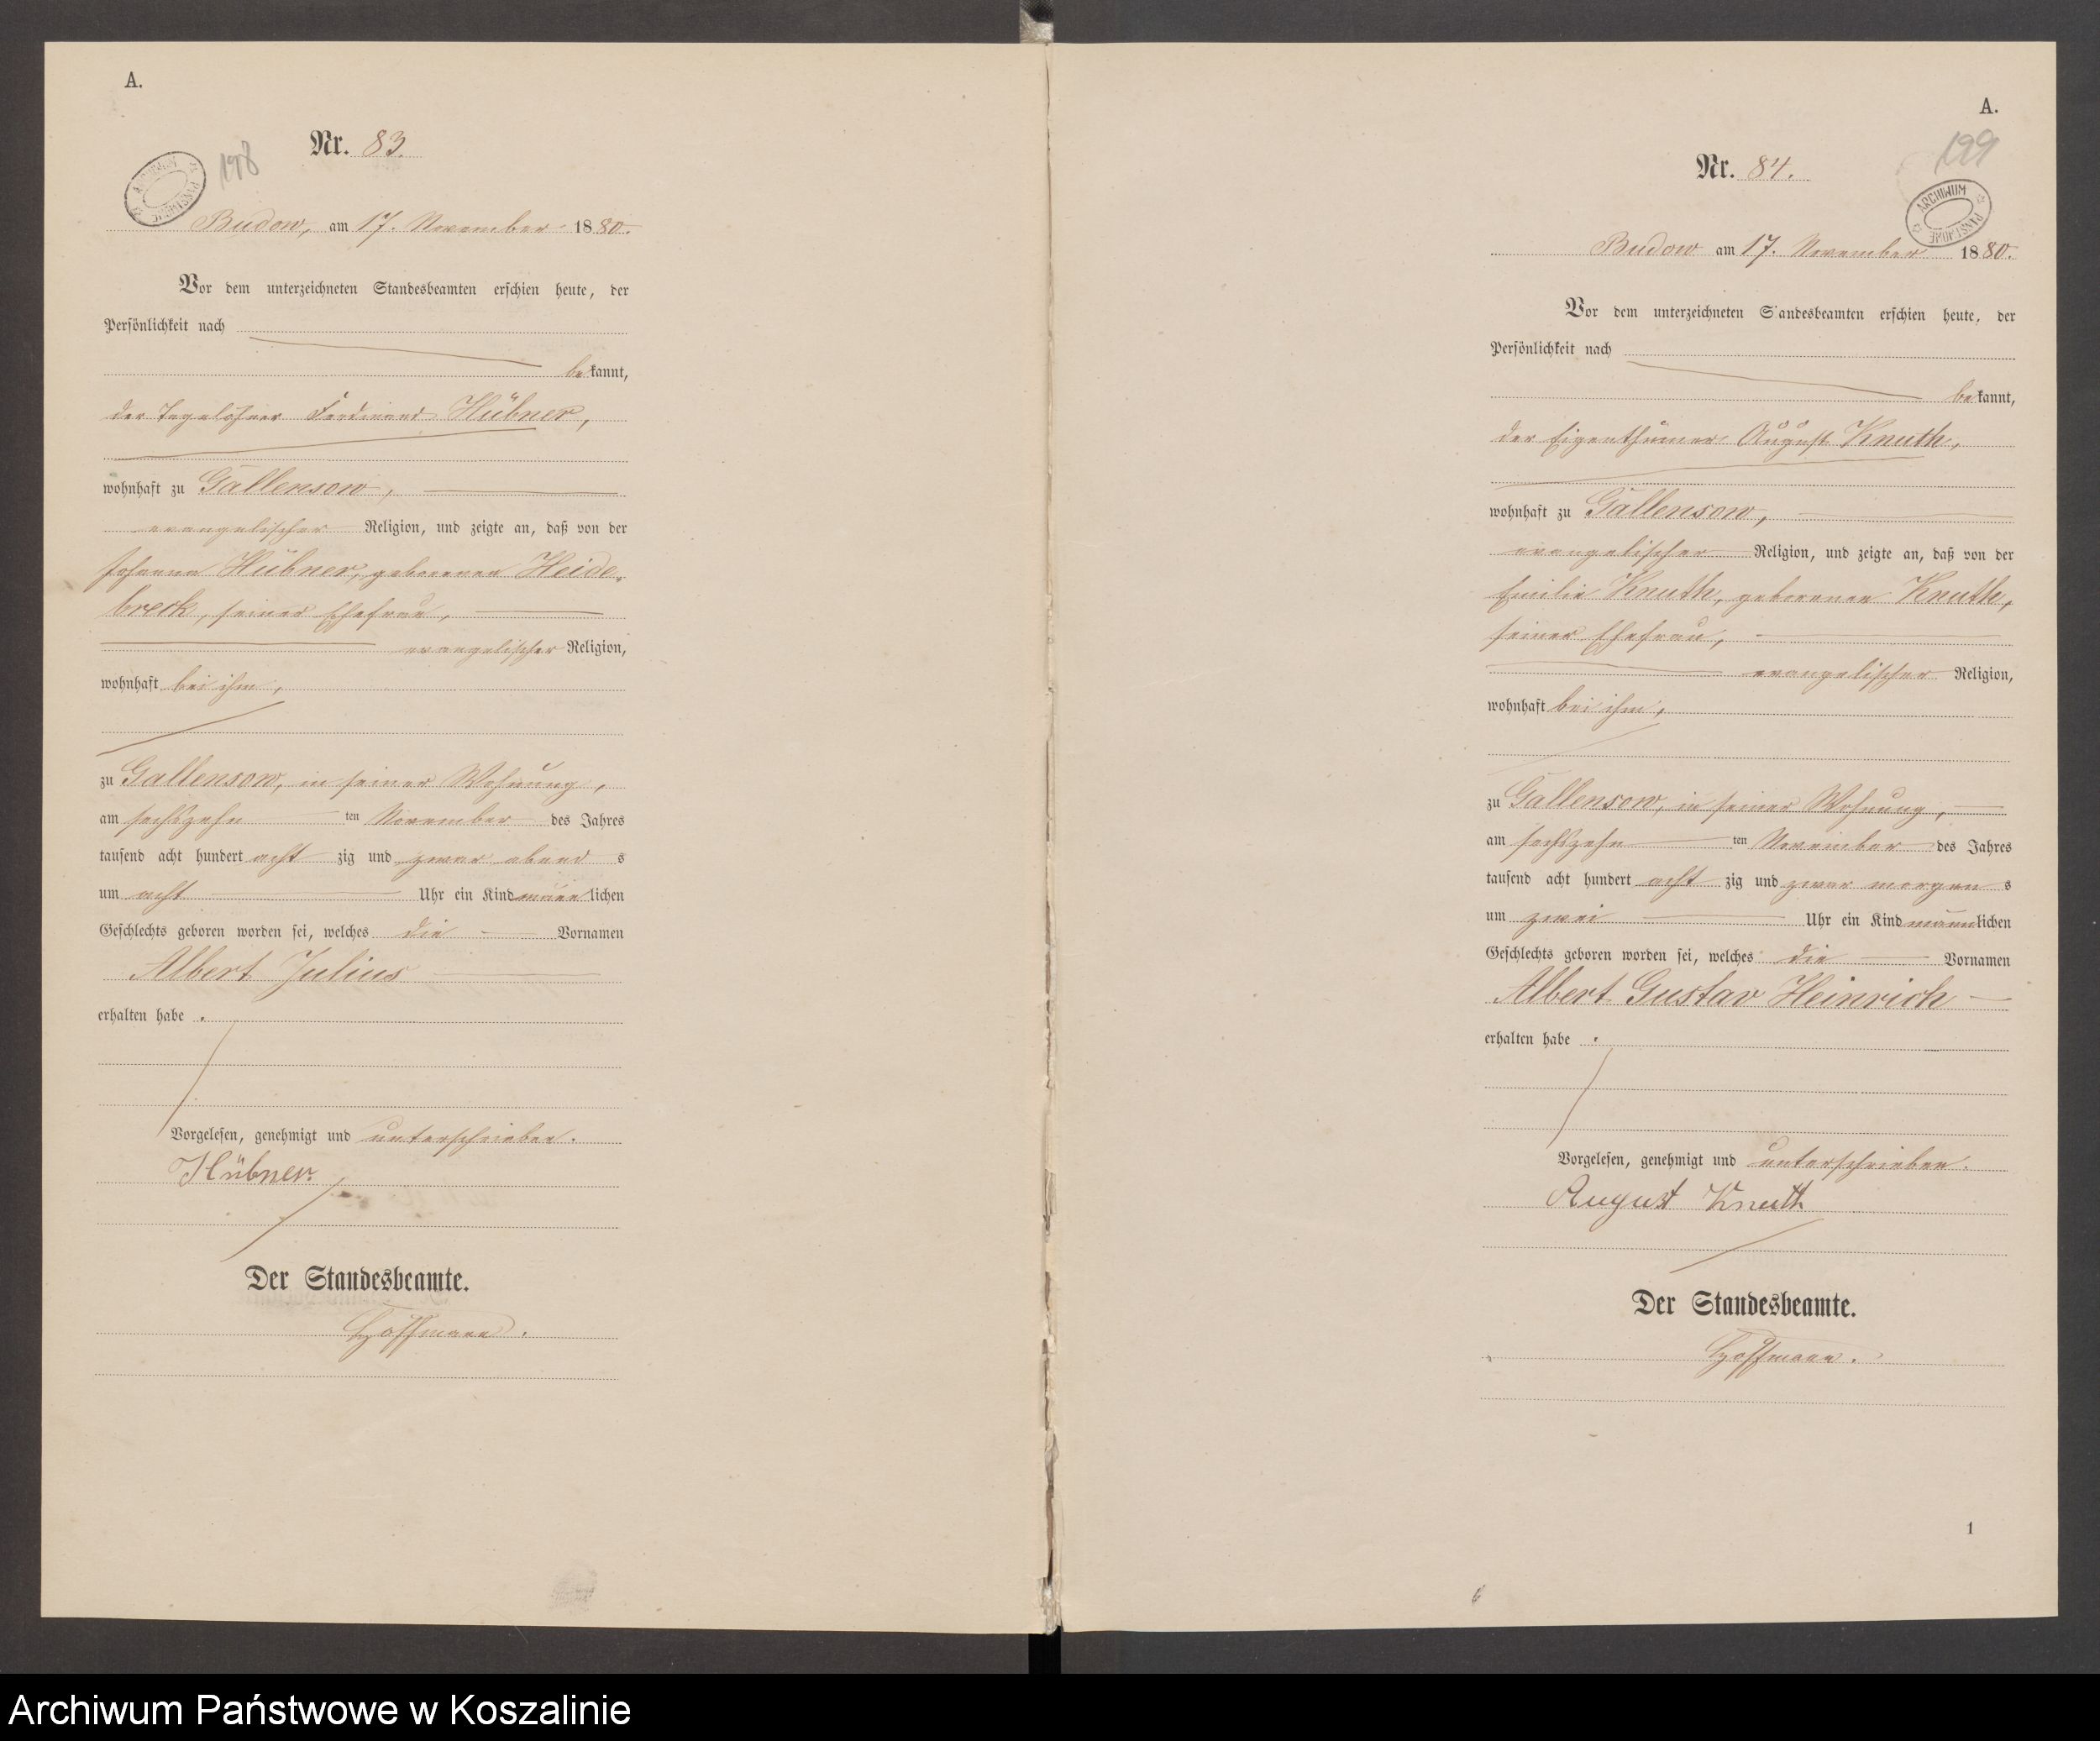 A.
198
Nr. 83.
Budow, am 17. November 1880.
Vor dem unterzeichneten Standesbeamten erschien heute, der
Persönlichkeit nach
bekannt,
der Tagelöhner Ferdinand Hübner,
wohnhaft zu Gallensow,
evangelischer Religion, und zeigte an, daß von der
Johanna Hübner, geborenen Heide-
breck, seiner Ehefrau,
evangelischer Religion,
wohnhaft bei ihm,
zu Gallensow, in seiner Wohnung,
am sechszehn ten November des Jahres
tausend acht hundert acht zig und zwar abend s
um acht Uhr ein Kind männlichen
Geschlechts geboren worden sei, welches die Vornamen
Albert Julius
erhalten habe.
Vorgelesen, genehmigt und unterschrieben.
Hübner.
Der Standesbeamte.
Hoffmann.
A.
199
ARCHIWUM PAŃSTWOWE
Nr. 84.
Budow am 17. November 1880.
Vor dem unterzeichneten Standesbeamten erschien heute, der
Persönlichkeit nach
bekannt,
der Eigenthümer August Knuth,
wohnhaft zu Gallensow,
evangelischer Religion, und zeigte an, daß von der
Emilie Knuth, geborenen Knuth,
seiner Ehefrau,
evangelischer Religion,
wohnhaft bei ihm,
zu Gallensow, in seiner Wohnung,
am sechszehn ten November des Jahres
tausend acht hundert acht zig und zwar morgen s
um zwei Uhr ein Kind männlichen
Geschlechts geboren worden sei, welches die Vornamen
Albert Gustav Heinrich
erhalten habe.
Vorgelesen, genehmigt und unterschrieben.
August Knuth
Der Standesbeamte.
Hoffmann.
1
Archiwum Państwowe w Koszalinie